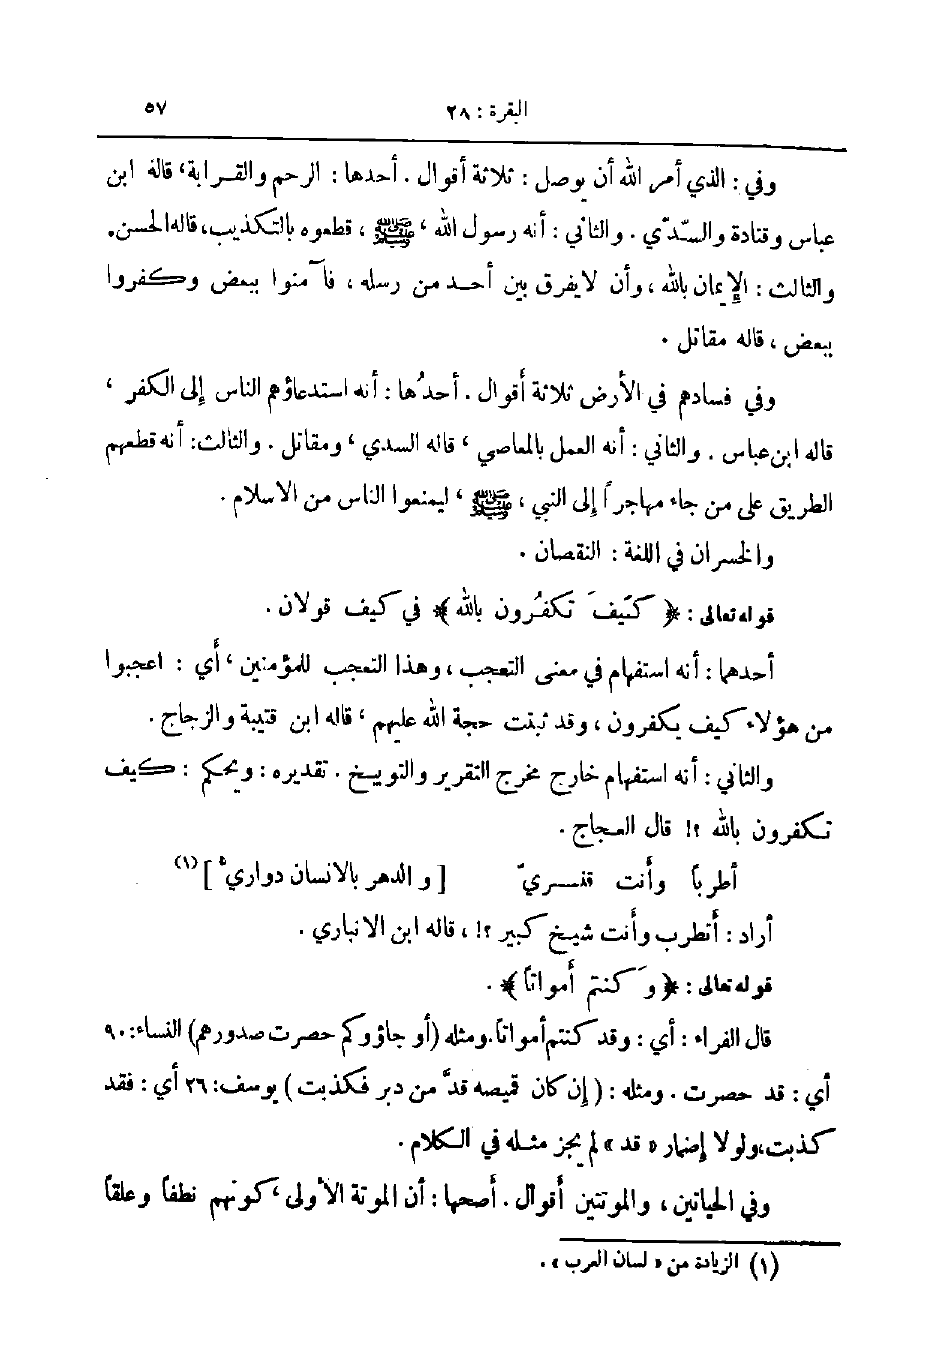 البقرة : ٢٨
٥٧
وفي : الذي أمر الله أن يوصل : ثلاثة أقوال . أحدها : الرحم والقرابة، قاله ابن
عباس وقتادة والسدّي . والثاني : أنه رسول الله ، ﷺ ، قطعوه بالتكذيب، قاله الحسن.
والثالث : الإيمان بالله ، وأن لايفرق بين أحد من رسله ، فآمنوا ببعض وكفروا
ببعض ، قاله مقاتل .
وفي فسادهم في الأرض ثلاثة أقوال . أحدُها : أنه استدعاؤهم الناس إلى الكفر ،
قاله ابن عباس . والثاني : أنه العمل بالمعاصي ، قاله السدي ، ومقاتل . والثالث: أنه قطعهم
الطريق على من جاء مهاجراً إلى النبي ، ﷺ ، ليمنعوا الناس من الاسلام .
والخسران في اللغة : النقصان .
قوله تعالى : ﴿ كَيفَ تكفُرون بالله ﴾ في كيف قولان .
أحدهما : أنه استفهام في معنى التعجب ، وهذا التعجب للمؤمنين ، أي : اعجبوا
من هؤلاء كيف يكفرون ، وقد ثبتت حجة الله عليهم ، قاله ابن قتيبة والزجاج .
والثاني : أنه استفهام خارج مخرج التقرير والتوبيخ . تقديره : ويحكم : كيف
تكفرون بالله ؟! قال العجاج .
أطرباً وأنت قنسريّ [ والدهر بالانسان دواريُّ ](١)
أراد : أتطرب وأنت شيخ كبير ؟! ، قاله ابن الانباري .
قوله تعالى : ﴿ وَكنتم أمواتاً ﴾ .
قال الفراء : أي : وقد كنتم أمواتاً. ومثله (أو جاؤوكم حصرت صدورهم) النساء: ٩٠
أي : قد حصرت . ومثله : ( إن كان قميصه قدَّ من دبر فكذبت ) يوسف: ٢٦ أي : فقد
كذبت، ولولا إضمار « قد » لم يجز مثله في الكلام .
وفي الحياتين ، والموتتين أقوال . أصحها : أن الموتة الأولى ، كونهم نطفاً وعلقاً
(١) الزيادة من « لسان العرب » .